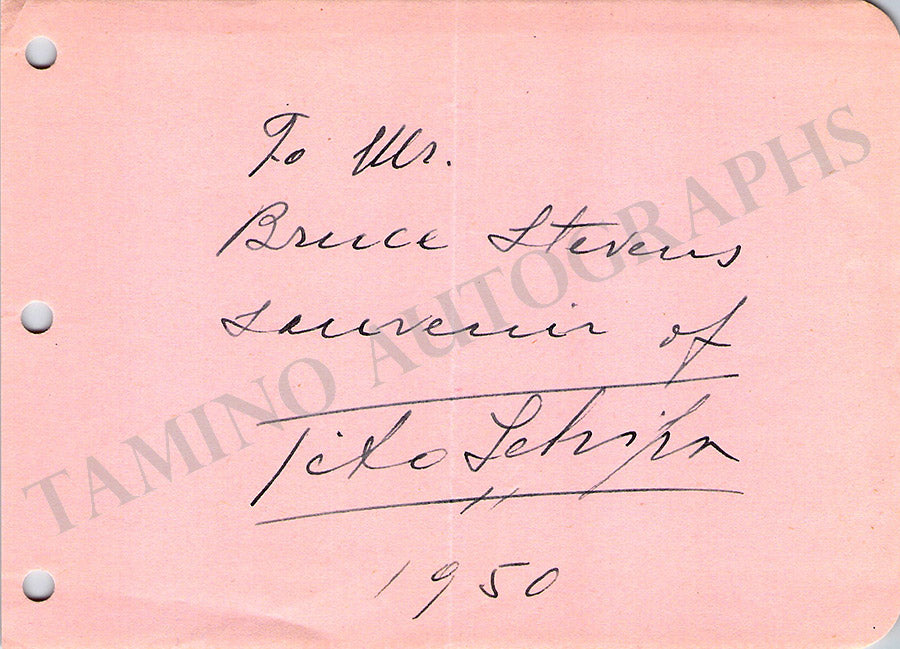 To Mr.
Bruce Stevens
Souvenir of
Tito Schipa
1950
TAMINO AUTOGRAPHS